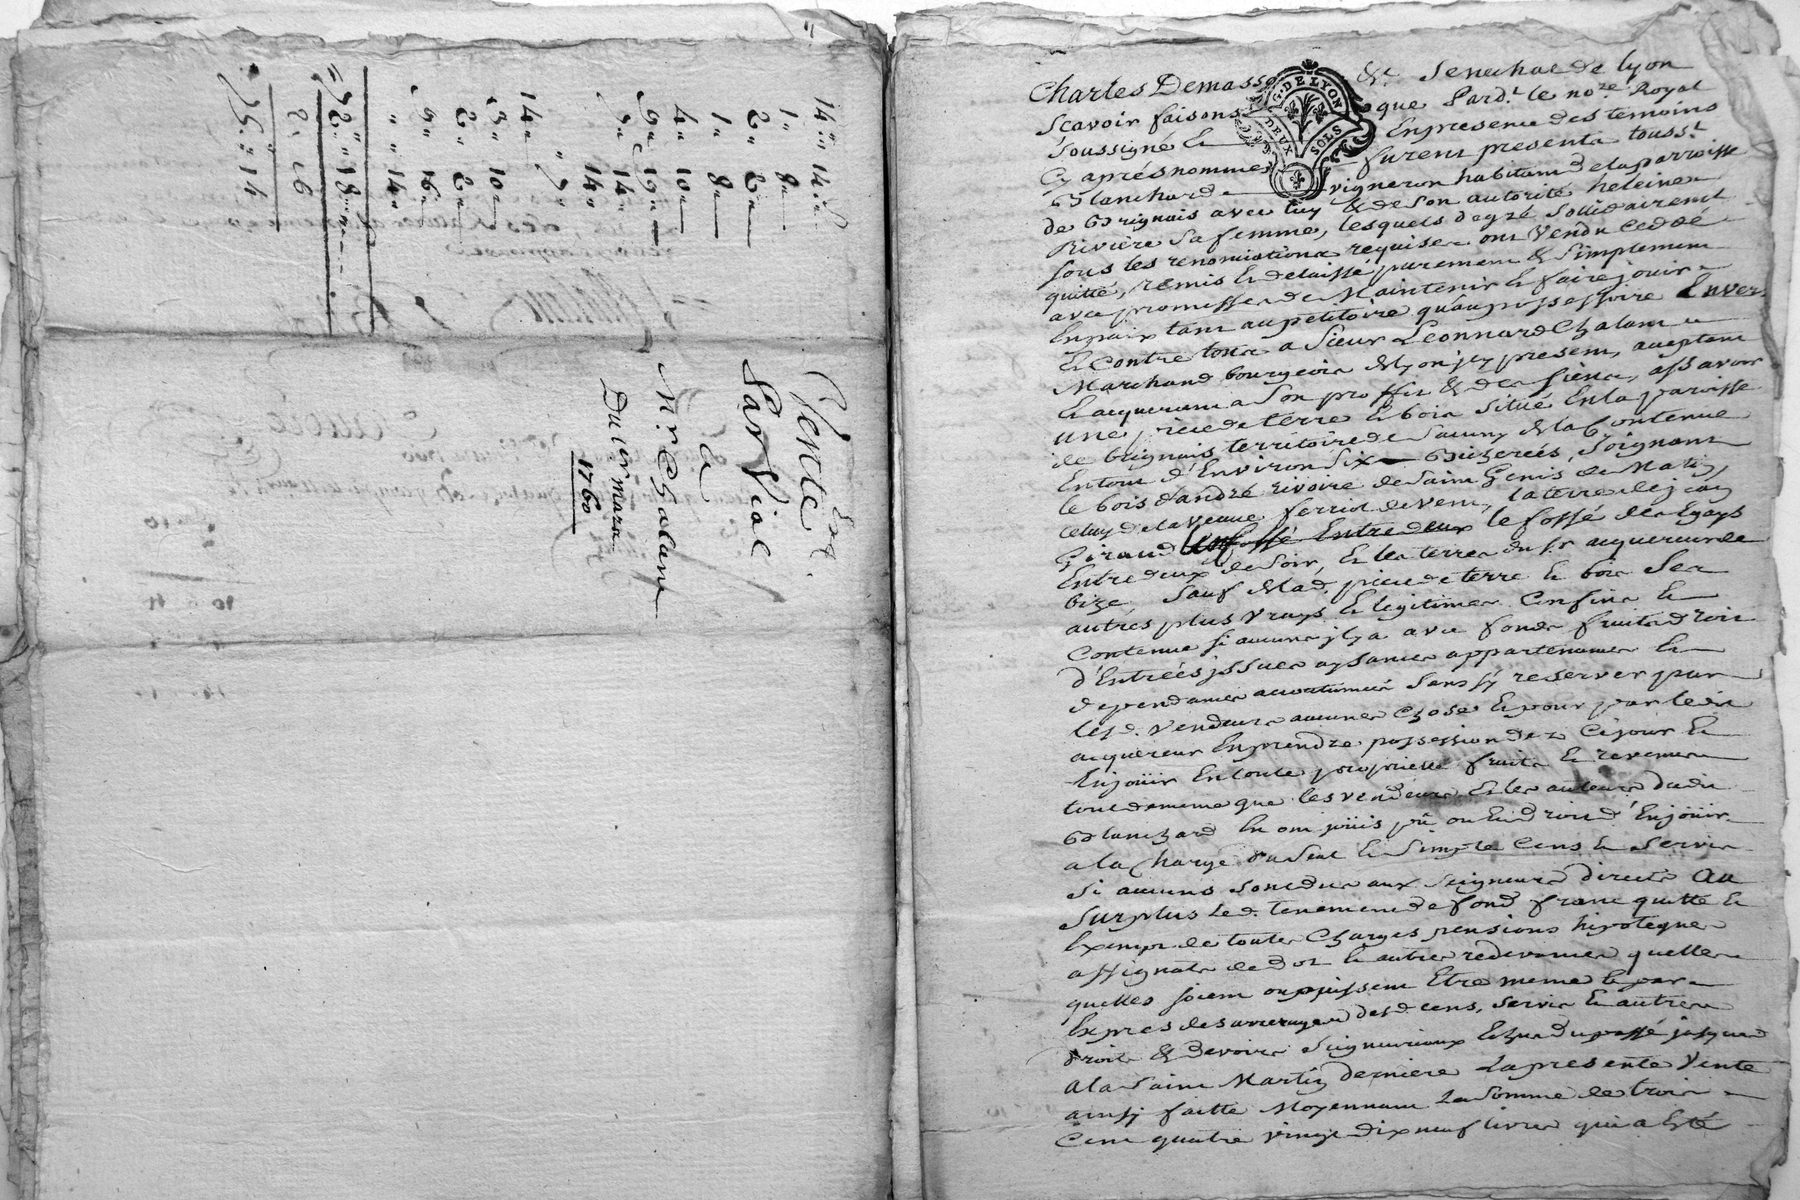 14" 14 s
1" 8"
2" 2"
1" 8"
4" 10"
9" 19"
7" 14"
" 14"
14" 7"
13" 10
2" 2"
9" 16"
" 14"
72" 18"
2" 16
75" 14
Vente
Par Vial
a
Mr. Chalam
Du
mars
1760
Charles Demasso &c. Senechal de Lyon
Scavoir faisons que Pard.t le no.re Royal
Soussigné Et En presence des temoins
Cy aprés nommes furent presents touss.t
Blanchard vigneron habitant de la parroisse
de Brignais avec luy & de Son autorité heleine
Riviére Sa femme, lesquels de gré Sollidairement
sous les renonciations requises ont Vendu Ceddé
quitté, remis Et delaissé purement & Simplement
avec promesse de Maintenir Et faire jouir
En paix tant au petitoire qu'au possessoire Enver
Et Contre tous a Sieur Leonnard Chalam
Marchand bourgeois de Lyon jcy present, aceptant
Et acquerant a Son proffit & des siens, assavoir
une piece de terre Et bois Situé En la paroisse
de brignais territoire de & de la Contenue
En tout d'Environ Six Bicherées, Joignant
le bois d'andré rivoire de Saint Genis de Matin,
Celuy de la Veuve ferriol de vent, la terre de jean
Giraud Un fossé Entre deux le fossé des Egays
Entre deux de Soir, Et les terres du s.r acquereur de
bize, Sauf de lad. piece de terre Et bois Ses
autres plus Vrays Et legitimes Confins Et
Contenue si aucuns jl y a avec fonds fruits droits
d'Entrées jssues aysances appartenances Et
dependances acoutumées Sans sy reserver par
lesd. Vendeurs aucune Chose Et pour par ledit
acquereur En prendre possession dez Cejour Et
En joüir En toute proprieté fruits Et revenus
tout de meme que les vendeurs Et les auteurs dudit
Blanchard En ont joüis pû ou Eu droit d'En joüir
a la Charge du Seul Et Simple Cens Et Servis
Si aucuns Sont dus aux Seigneurs directs au
Surplus Led. tenement de fond franc quitte Et
Exempt de toutes Charges pensions hipoteques
assignats de dot Et autres redevances quelles
quelles soient ou puissent Etre meme Et par
Exprés des arrerages desd. cens, Servis Et autres
droits & devoirs Seigneuriaux Echus du passé jusques
a la Saint Martin derniere La presente Vente
ainsy faitte Moyennant La Somme de trois
Cent quatre vingt dix neuf livres qui a Esté
G. DE LYON
DEUX SOLS